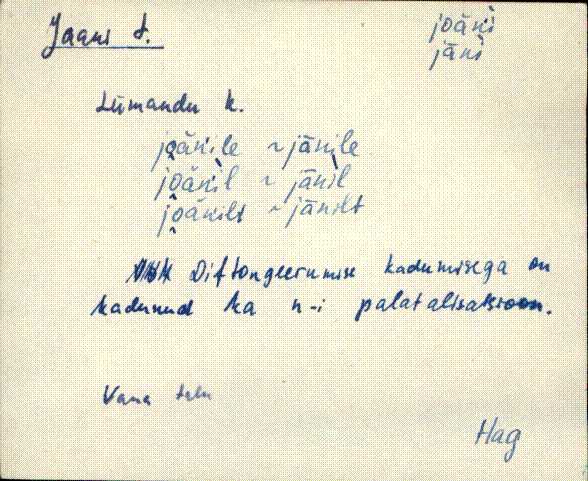 Jaani t.
joäńi
jāni
Liimandu k.
jo̭äńile ~ jānile
jo̭äńil ~ jānil
jo̭äńilt ~ jānilt
Diftongeerumise kadumisega on
kadunud ka n-i palatalisatsioon.
Vana talu
Hag